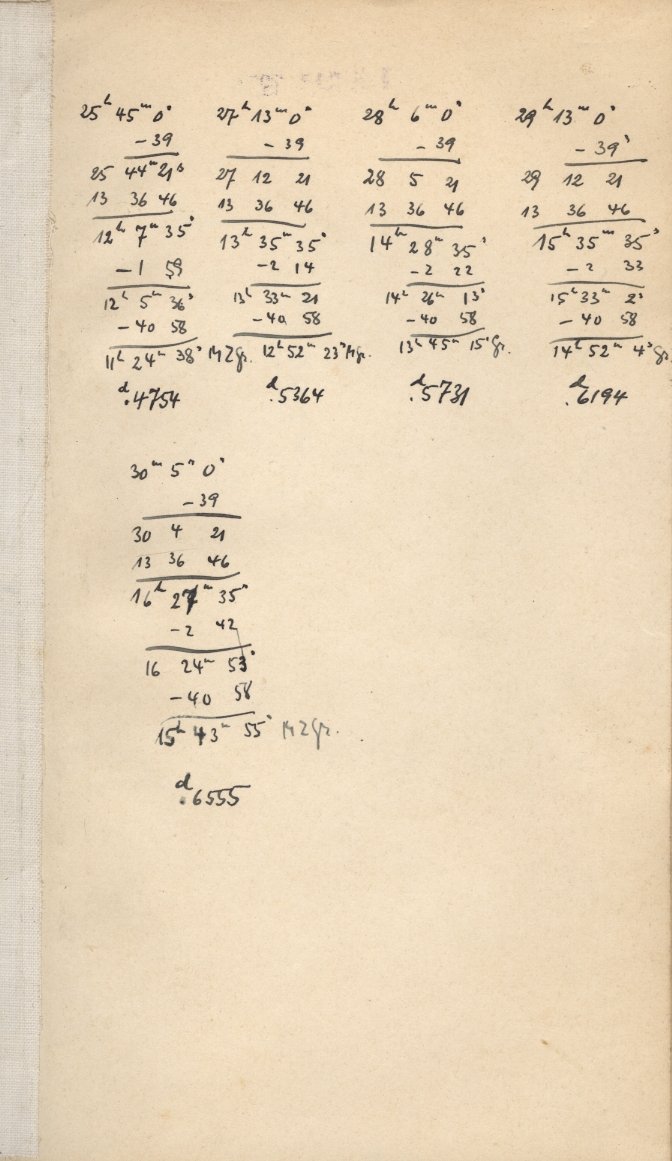 25ʰ 45ᵐ 0ˢ
- 39
25 44ᵐ 21ˢ
13 36 46
12ʰ 7ᵐ 35ˢ
- 1 59
12ʰ 5ᵐ 36ˢ
- 40 58
11ʰ 24ᵐ 38ˢ MZGr.
ᵈ.4754
27ʰ 13ᵐ 0ˢ
- 39
27 12 21
13 36 46
13ʰ 35ᵐ 35ˢ
- 2 14
13ʰ 33ᵐ 21
- 40 58
12ʰ 52ᵐ 23ˢ MGr.
ᵈ.5364
28ʰ 6ᵐ 0ˢ
- 39
28 5 21
13 36 46
14ʰ 28ᵐ 35ˢ
- 2 22
14ʰ 26ᵐ 13ˢ
- 40 58
13ʰ 45ᵐ 15ˢ Gr.
ᵈ.5731
29ʰ 13ᵐ 0ˢ
- 39ˢ
29 12 21
13 36 46
15ʰ 35ᵐ 35ˢ
- 2 33
15ʰ 33ᵐ 2ˢ
- 40 58
14ʰ 52ᵐ 4ˢ Gr.
ᵈ.6194
30ᵐ 5ˢ 0ˢ
- 39
30 4 21
13 36 46
16ʰ 27ᵐ 35ˢ
- 2 42
16 24ᵐ 53ˢ
- 40 58
15ʰ 43ᵐ 55ˢ MZGr.
ᵈ.6555